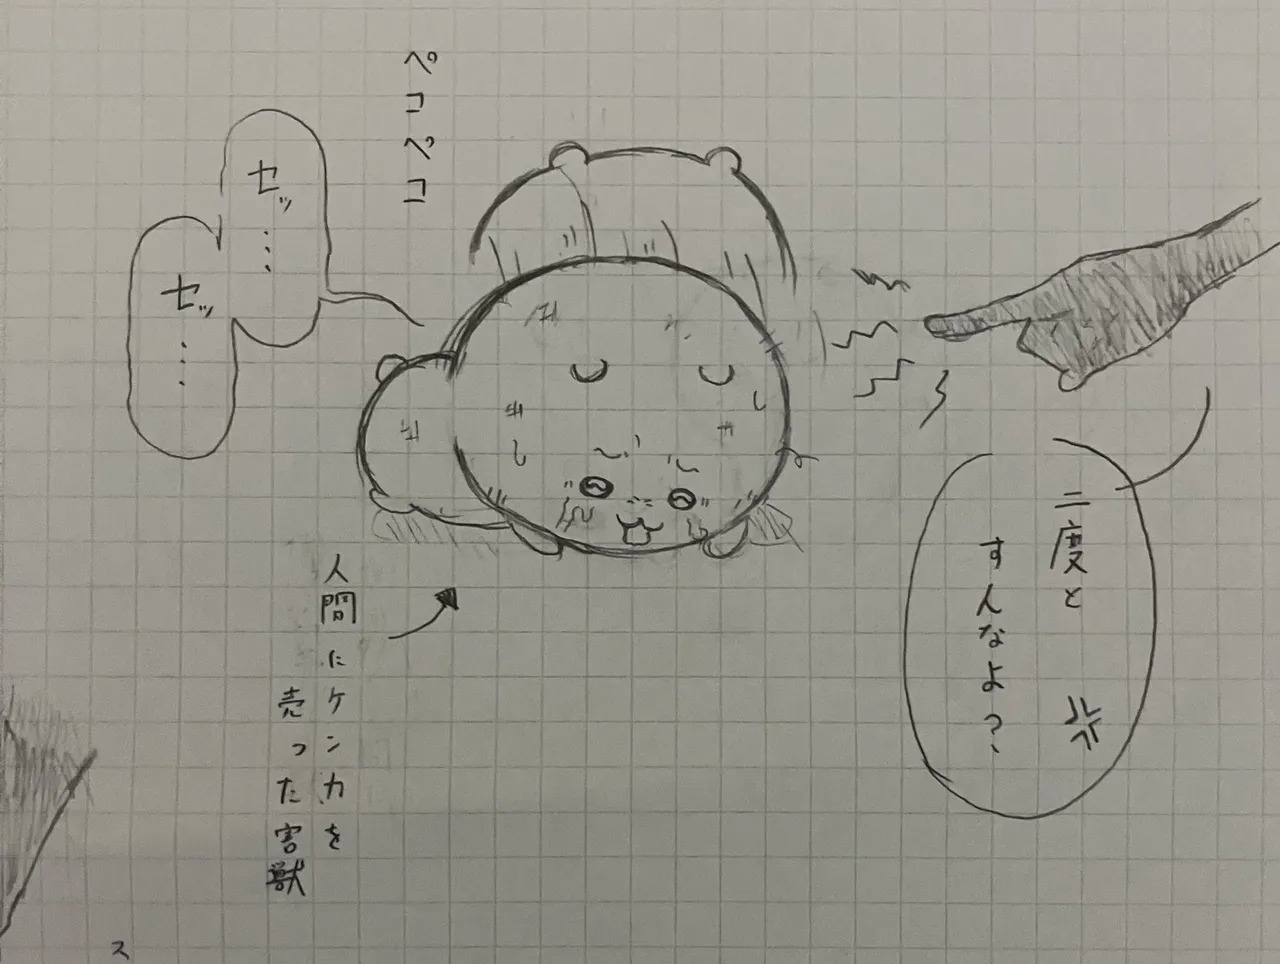 ペコペコ
ゼッ…
ゼッ…
二度と
すんなよ?
人間にケンカを
売った害獣
ス